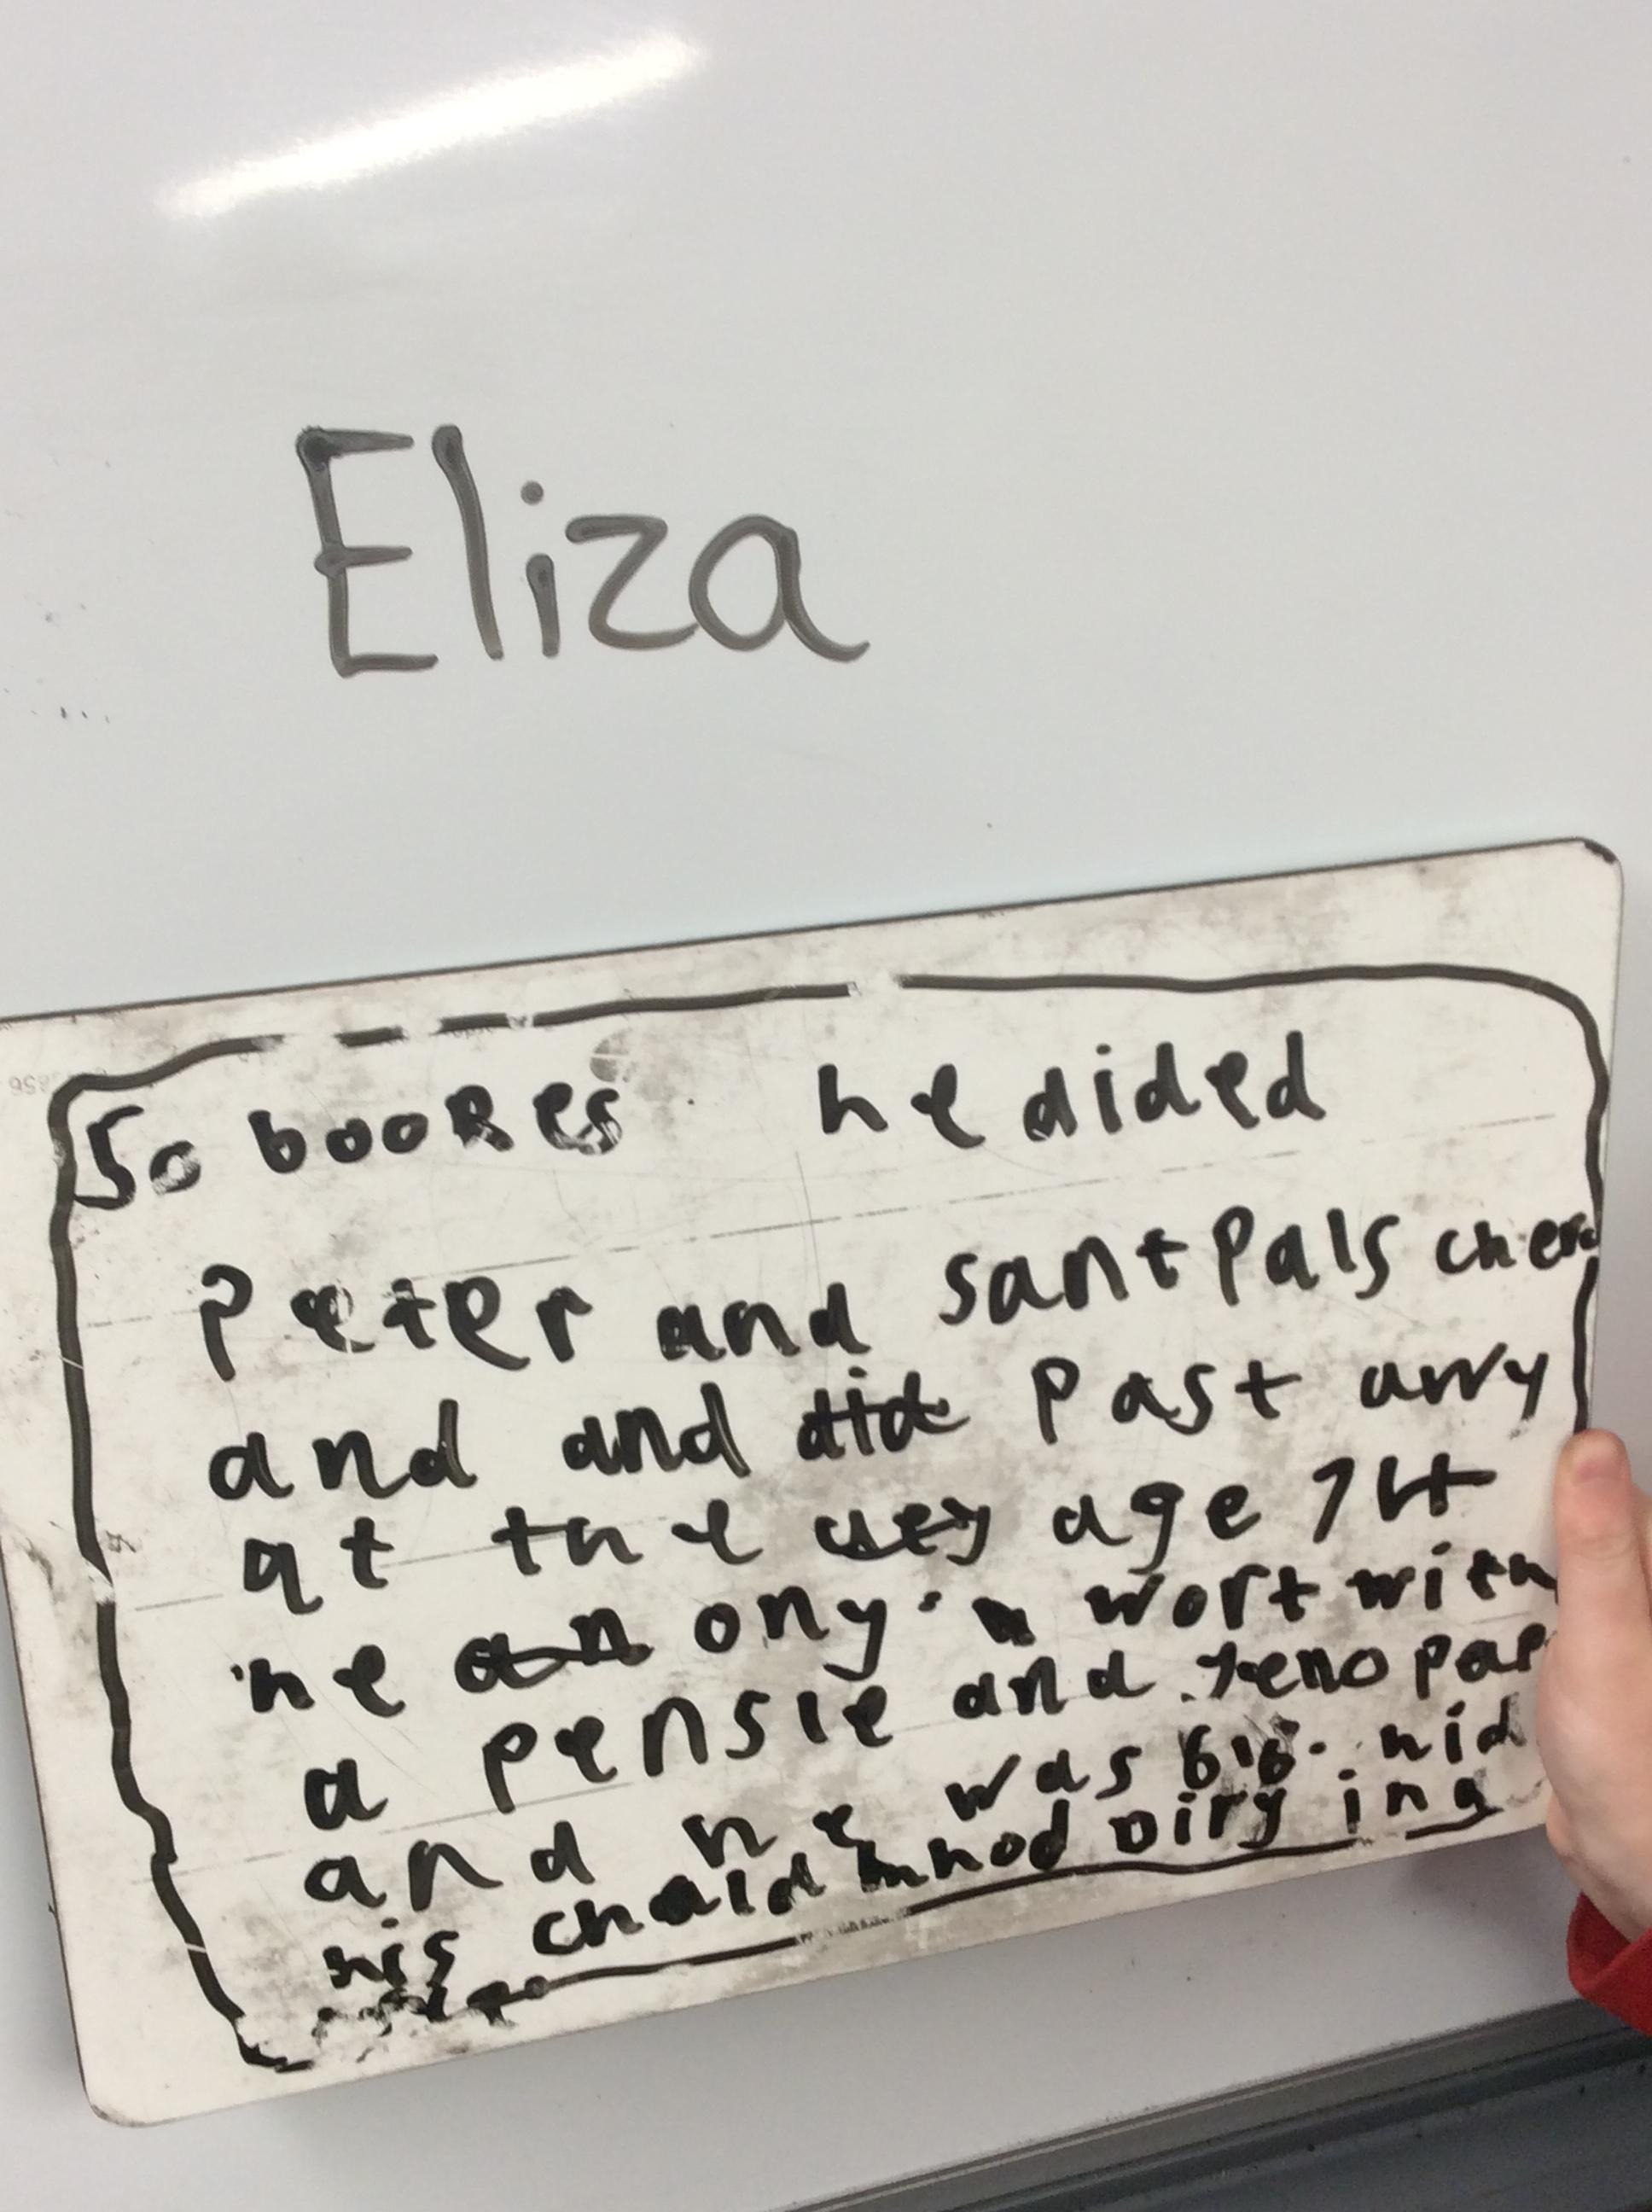 Eliza
So bookes he dided
Peter and sant Pals
and and did past awy
at the age 74
he an ony wort with
a pensle and
and he was 6'6" hid
his chaldmhod Diry ing